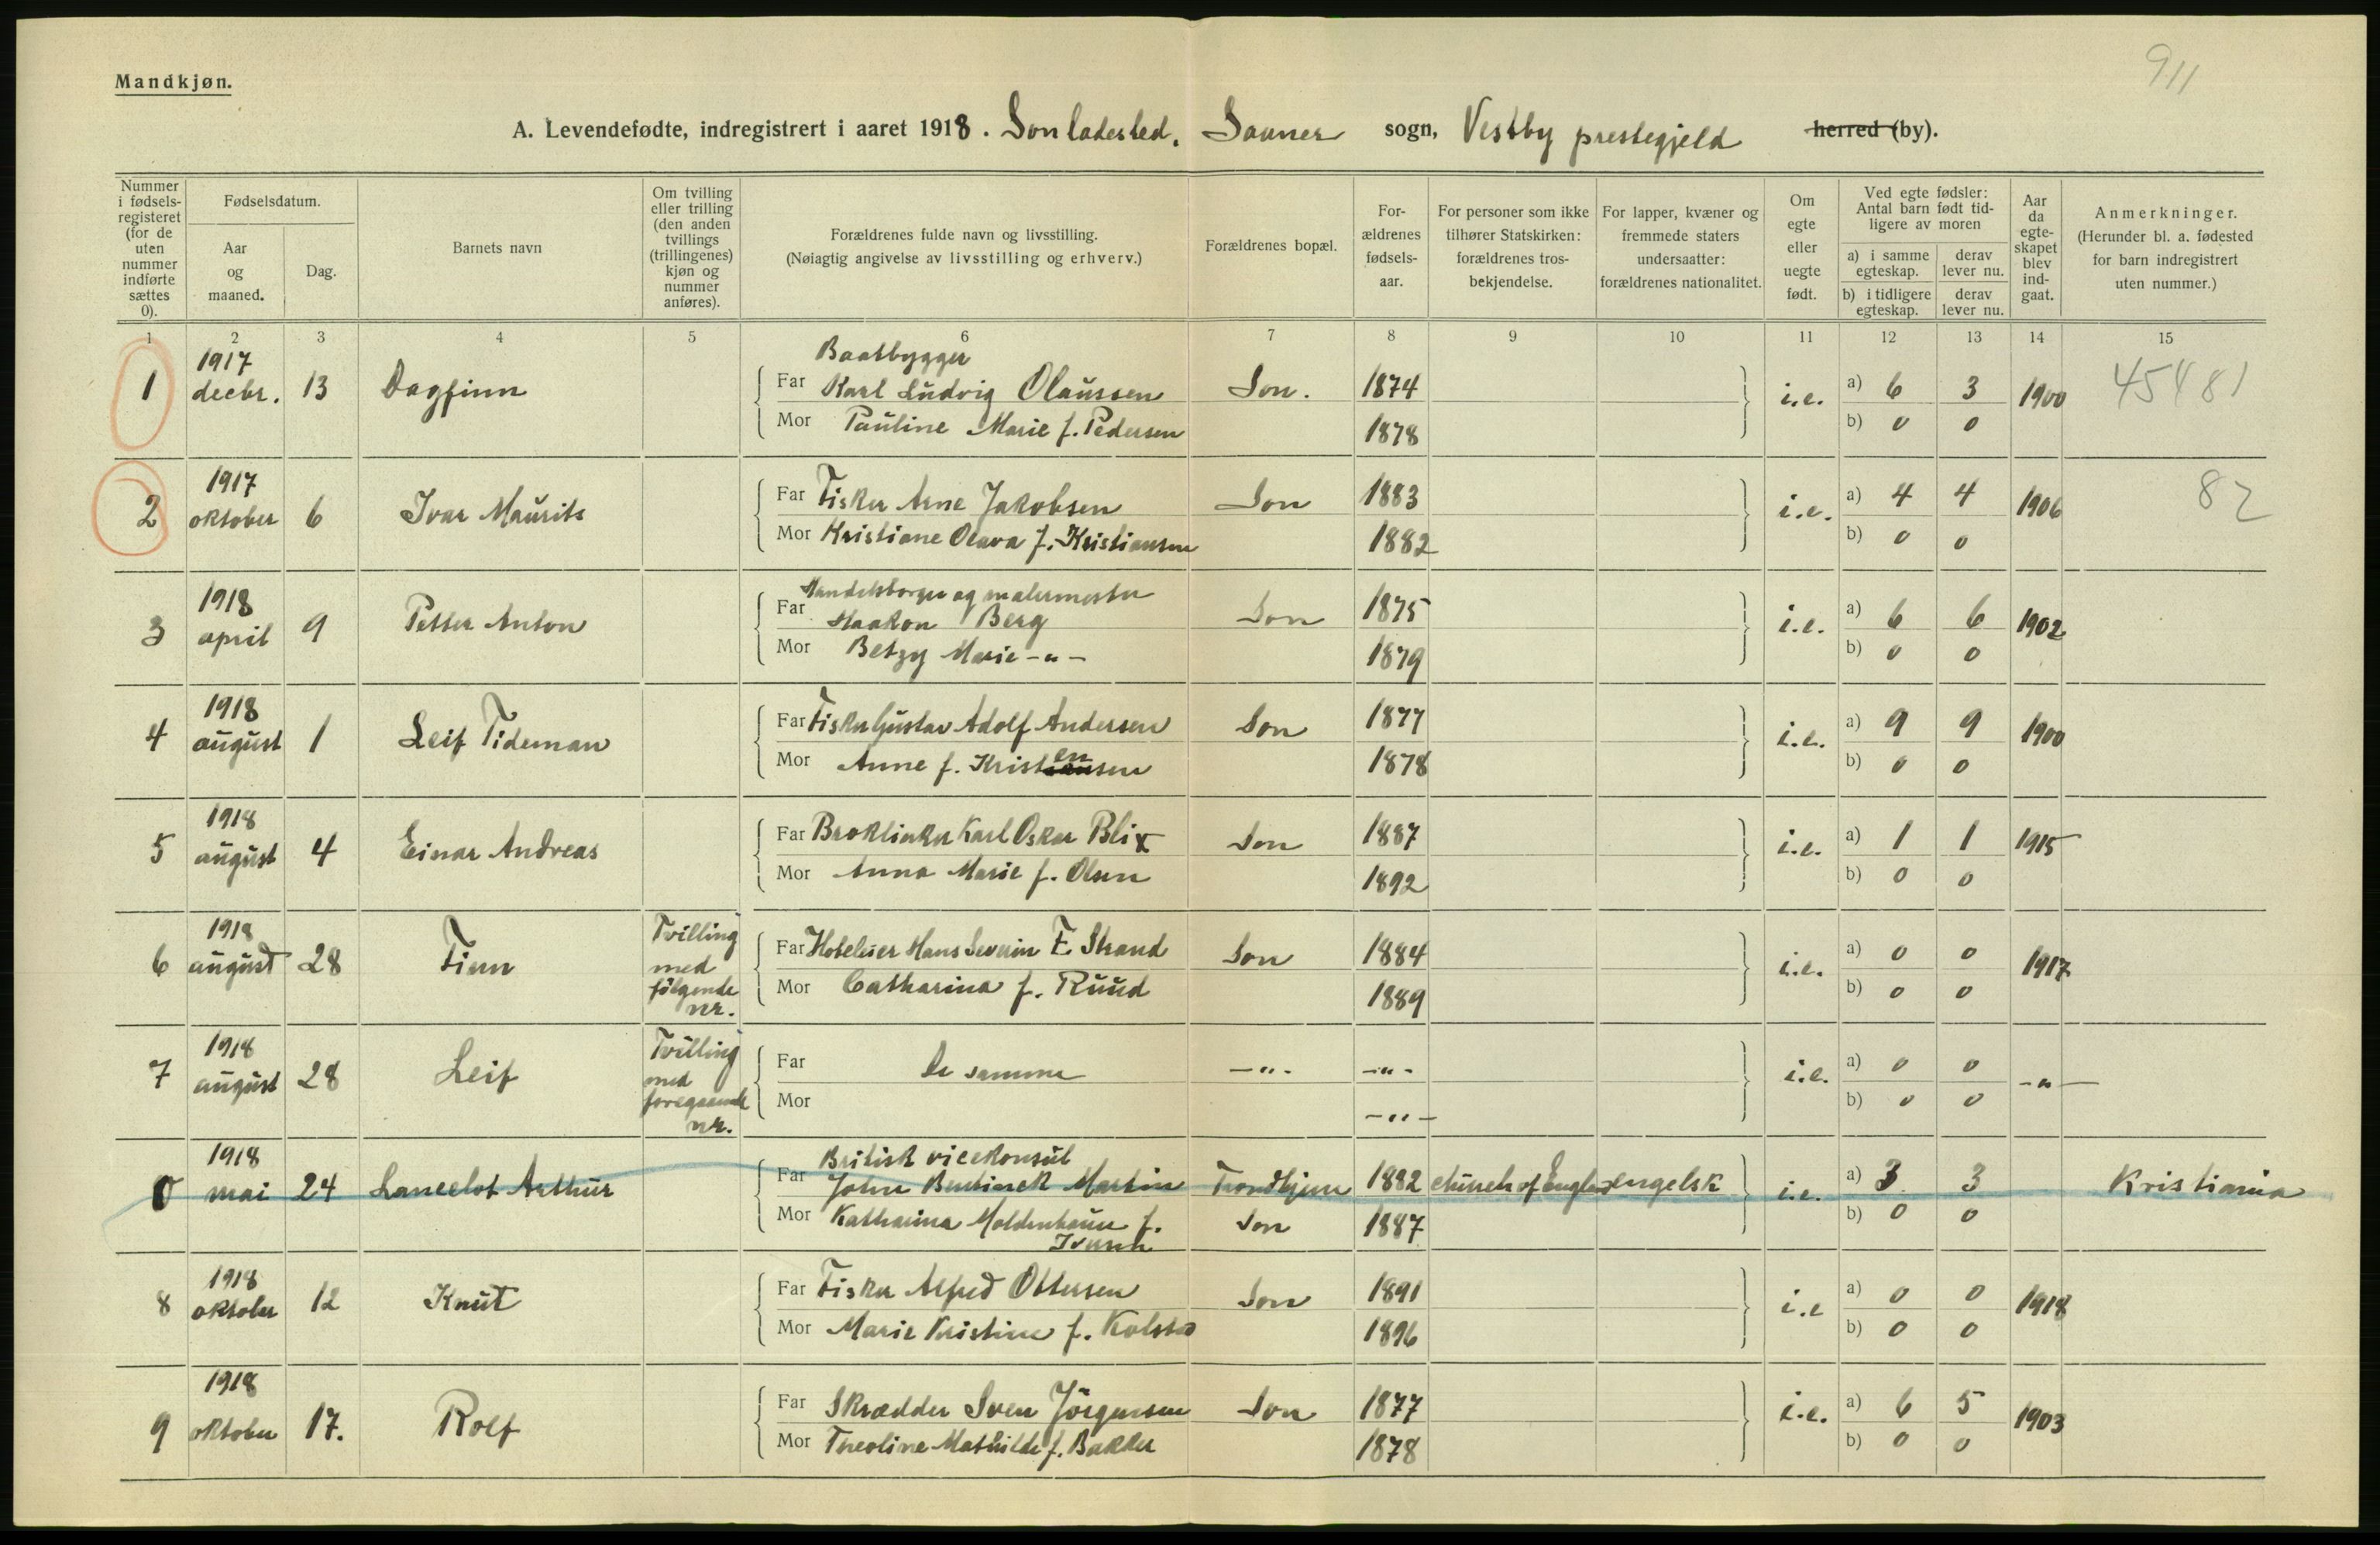 911
Mandkjøn.
A. Levendefødte, indregistrert i aaret 1918. Son ladested. Saaner sogn, Vestby prestegjeld herred (by).
Nummer i fødselsregisteret (for de uten nummer indførte sættes 0).
Fødselsdatum.
Aar og maaned.
Dag.
Barnets navn
Om tvilling eller trilling (den anden tvillings (trillingenes) kjøn og nummer anføres).
Forældrenes fulde navn og livsstilling.
(Nøiagtig angivelse av livsstilling og erhverv.)
Forældrenes bopæl.
Forældrenes fødselsaar.
For personer som ikke tilhører Statskirken: forældrenes trosbekjendelse.
For lapper, kvæner og fremmede staters undersaatter: forældrenes nationalitet.
Om egte eller uegte født.
Ved egte fødsler: Antal barn født tidligere av moren
a) i samme egteskap. derav lever nu.
b) i tidligere egteskap. derav lever nu.
Aar da egteskapet blev indgaat.
Anmerkninger.
(Herunder bl. a. fødested for barn indregistrert uten nummer.)
1 2 3 4 5 6 7 8 9 10 11 12 13 14 15
1917 Baatbygger
1 decbr. 13 Dagfinn Far Karl Ludvig Olaussen Son. 1874 i.e. a) 6 3 1900 45481
Mor Pauline Marie f. Pedersen 1878 b) 0 0
1917
2 oktober 6 Ivar Maurits Far Fisker Arne Jakobsen Son 1883 i.e. a) 4 4 1906 82
Mor Kristiane Olava f. Kristiansen 1882 b) 0 0
1918 Handelsborger og malermester
3 april 9 Petter Anton Far Haakon Berg Son 1875 i.e. a) 6 6 1902
Mor Betzy Marie -"- 1879 b) 0 0
1918
4 august 1 Leif Tideman Far Fisker Gustav Adolf Andersen Son 1877 i.e. a) 9 9 1900
Mor Anne f. Kristensen 1878 b) 0 0
1918
5 august 4 Einar Andreas Far Braklinker Karl Oskar Blix Son 1887 i.e. a) 1 1 1915
Mor Anna Marie f. Olsen 1892 b) 0 0
1918
6 august 28 Finn Tvilling med følgende nr. Far Hoteleier Hans Severin F. Strand Son 1884 i.e. a) 0 0 1917
Mor Catharina f. Ruud 1889 b) 0 0
1918
7 august 28 Leif Tvilling med foregaaende nr. Far De samme -"- -"- i.e. a) 0 0 -"-
Mor -"- b) 0 0
1918 Britisk vicekonsul
0 mai 24 Lancelot Arthur Far John Bentinck Martin Trondhjem 1882 church of England engelsk i.e. a) 3 3 Kristiania
Mor Katharina Moldenhauer f. Iversen Son 1887 b) 0 0
1918
8 oktober 12 Knut Far Fisker Alfred Ottersen Son 1891 i.e a) 0 0 1918
Mor Marie Kristine f. Kolstad 1896 b) 0 0
1918
9 oktober 17. Rolf Far Skrædder Sven Jörgensen Son 1877 i.e. a) 6 5 1903
Mor Theoline Mathilde f. Bakker 1878 b) 0 0